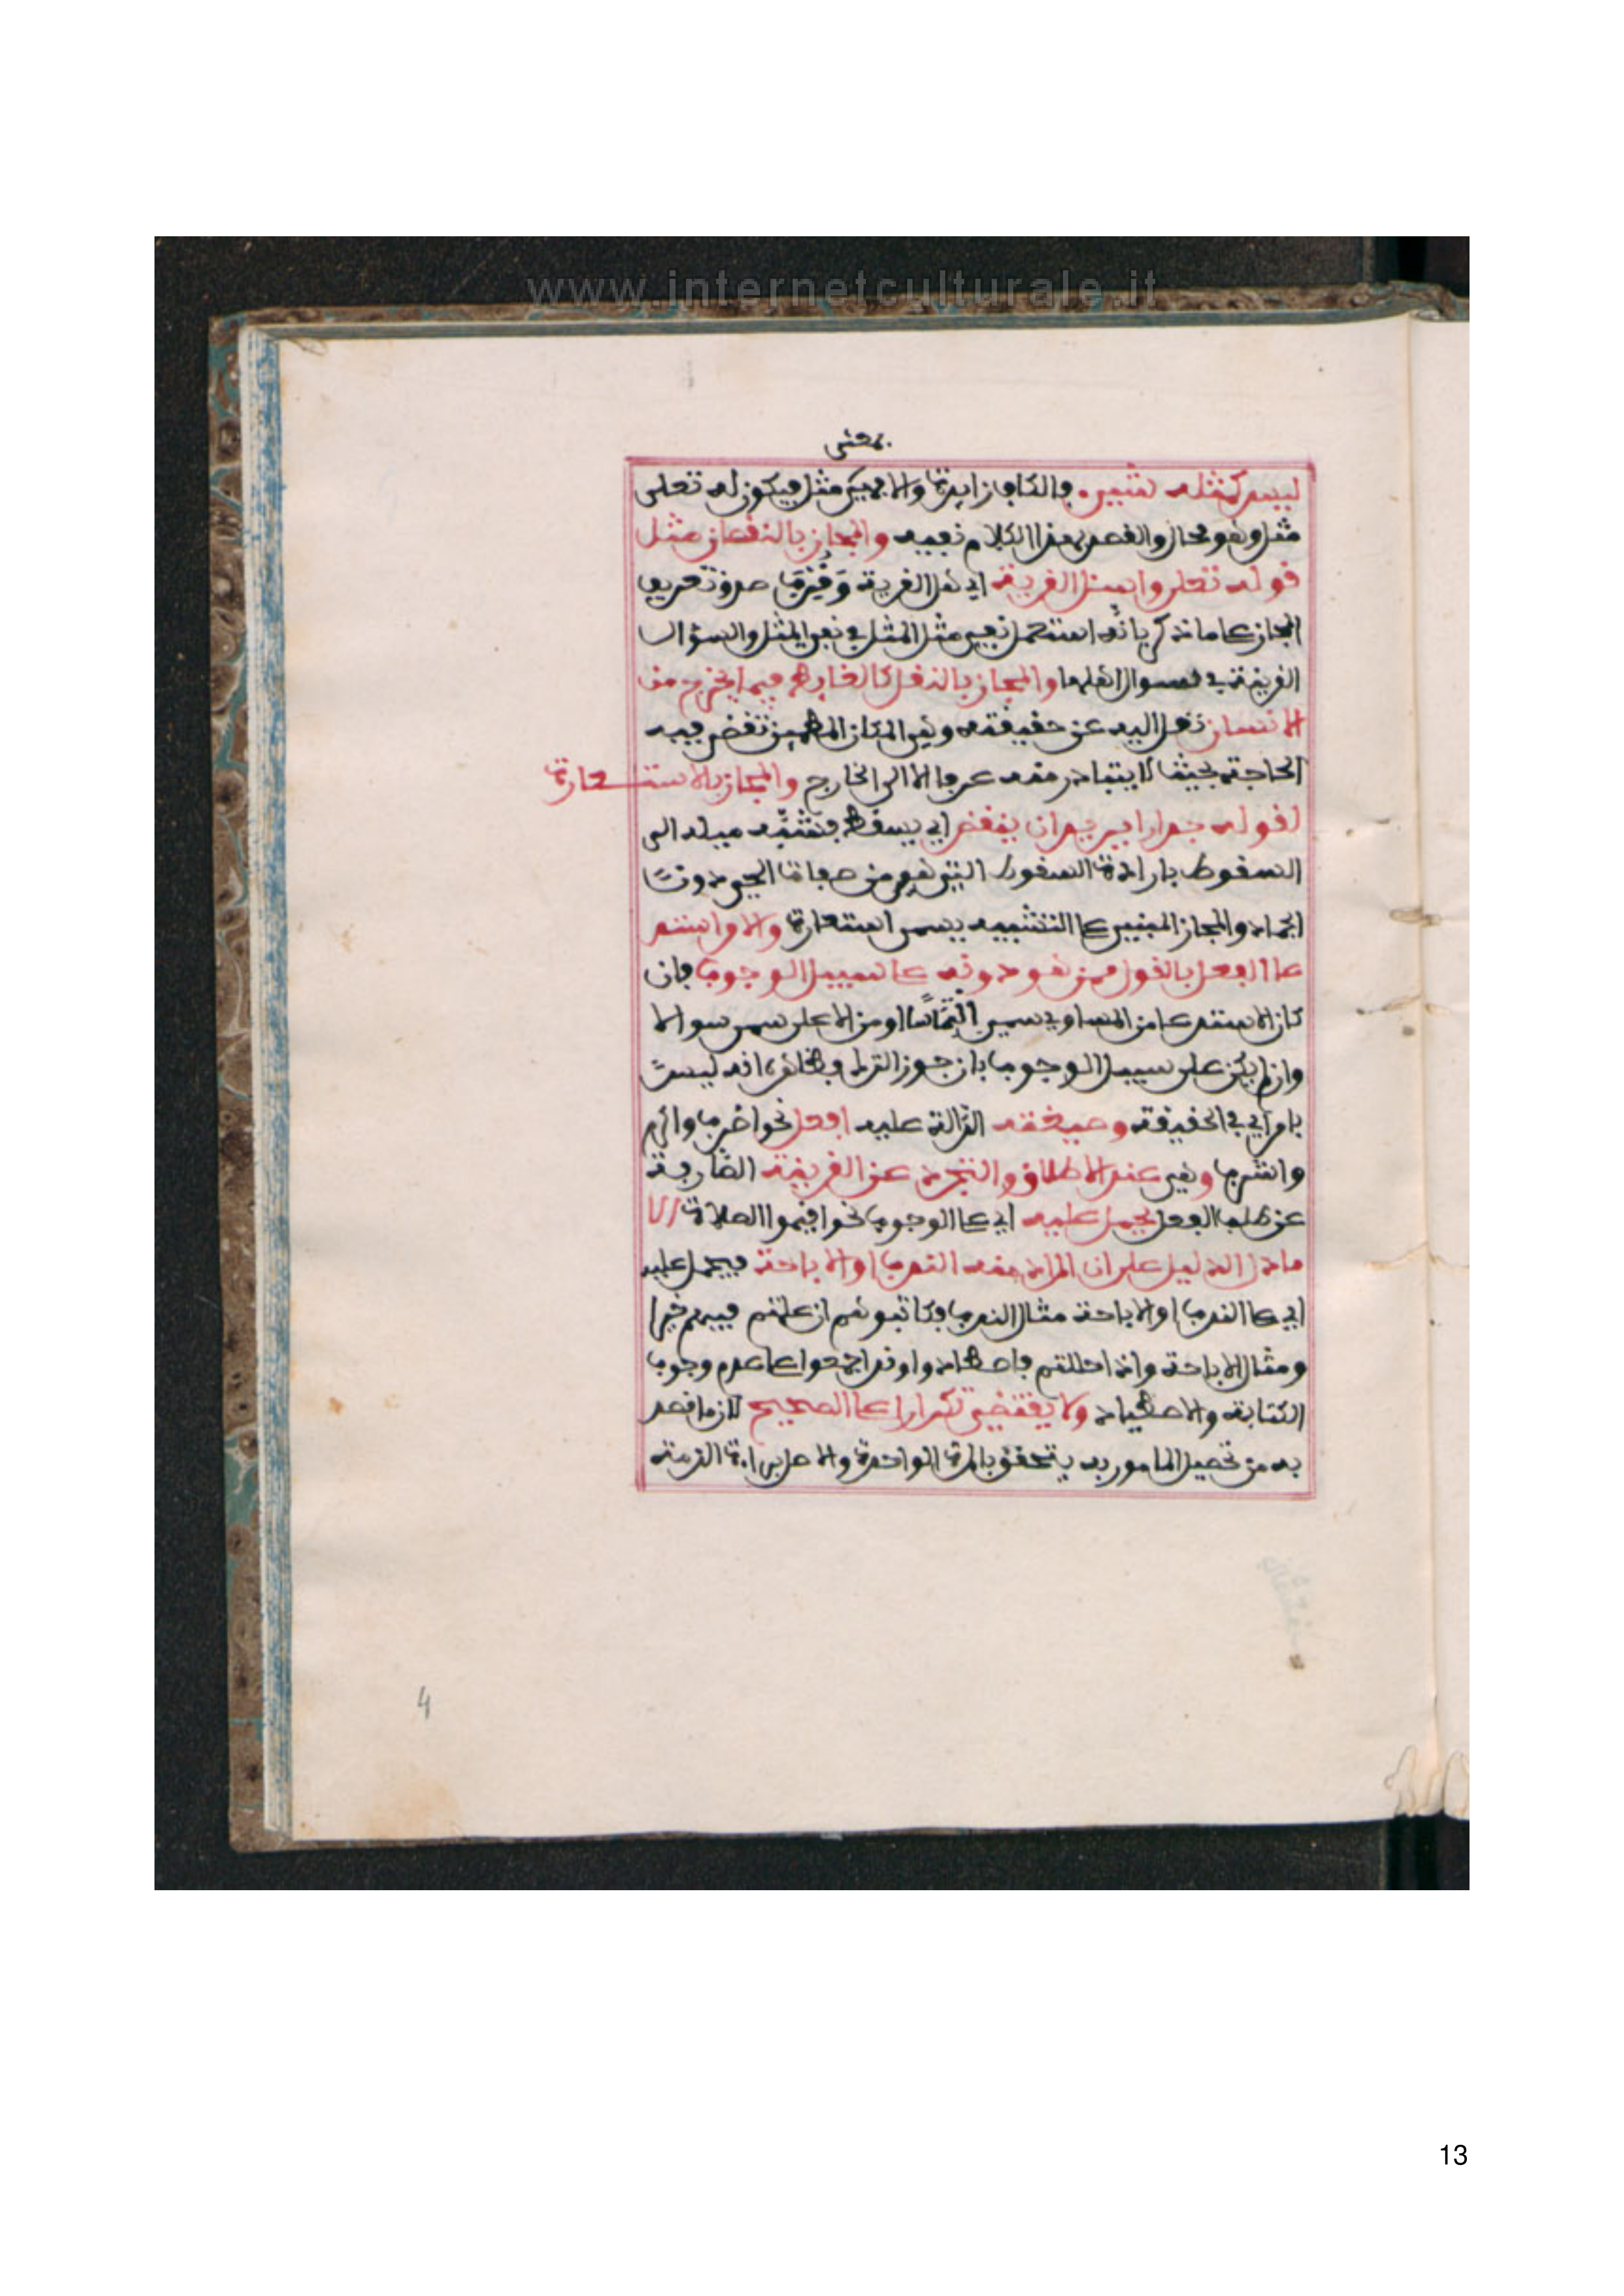 www.internetculturale.it
بمعنى
ليس كمثله شيء فالكاف زايدة والا فهي بمعنى مثل فيكون له تعلى
مثل وهو محال والقصد بهذا الكلام نفيه والمجاز بالنقصان مثل
قوله تعلى واسئل القرية اي اهل القرية وقرب صدق تعريف
المجاز على ما ذكر بانه استعمل نفي مثل المثل في نفي المثل والسؤال
القرية في سوال اهلها والمجاز بالنقل كالغايط فيما يخرج من
الانسان نقل اليه عن حقيقته وهي المكان المطمئن تقضى فيه
الحاجة بحيث لا يتبادر منه عرفا الا الى الخارج والمجاز بالاستعارة
كقوله جدارا يريد ان ينقض اي يسقط فشبه ميله الى
السقوط بارادة السقوط التي هي من صفات الحي دون
الجماد والمجاز المبني على التشبيه يسمى استعارة والامر استد
عاء الفعل بالقول ممن هو دونه على سبيل الوجوب فان
كان الاستدعا من المساوي سمي التماسا او من الاعلى سمى سوالا
وان لم يكن على سبيل الوجوب بان جوز الترك فظاهره انه ليس
بامر اي في الحقيقة وصيغته الدالة عليه افعل نحو اضرب واكرم
واشرب وهي عند الاطلاق والتجرد عن القرينة الصارفة
عن طلب الفعل يحمل عليه اي على الوجوب نحو اقيموا الصلاة الا
ما دل الدليل على ان المراد منه الندب او الاباحة فيحمل عليه
اي على الندب او الاباحة مثال الندب فكاتبوهم ان علمتم فيهم خيرا
ومثال الاباحة واذا حللتم فاصطادوا وقد اجمعوا على عدم وجوب
الكتابة والاصطياد ولا يقتضي تكرارا على الصحيح لان ما قصد
به من تحصيل المامور به يتحقق بالمرة الواحدة والاصل براءة الذمة
4
13